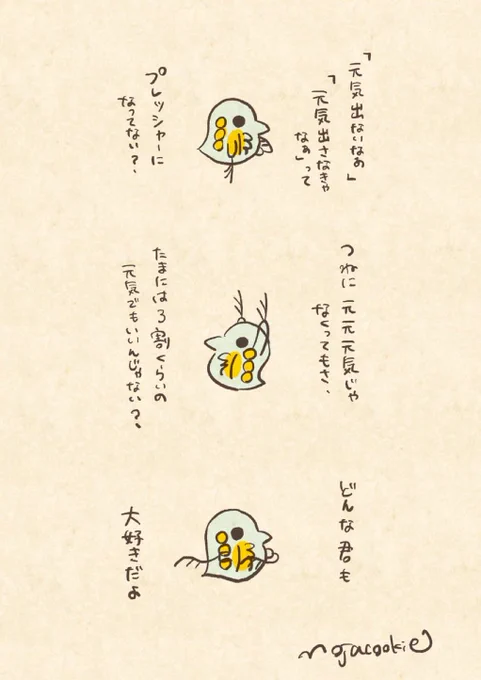 「元気出ないなぁ」
「元気出さなきゃ
なぁ」って
プレッシャーに
なってない?
つねに元元元気じゃ
なくってもさ、
たまには3割くらいの
元気でもいいんじゃない?
どんな君も
大好きだよ
mojacookie